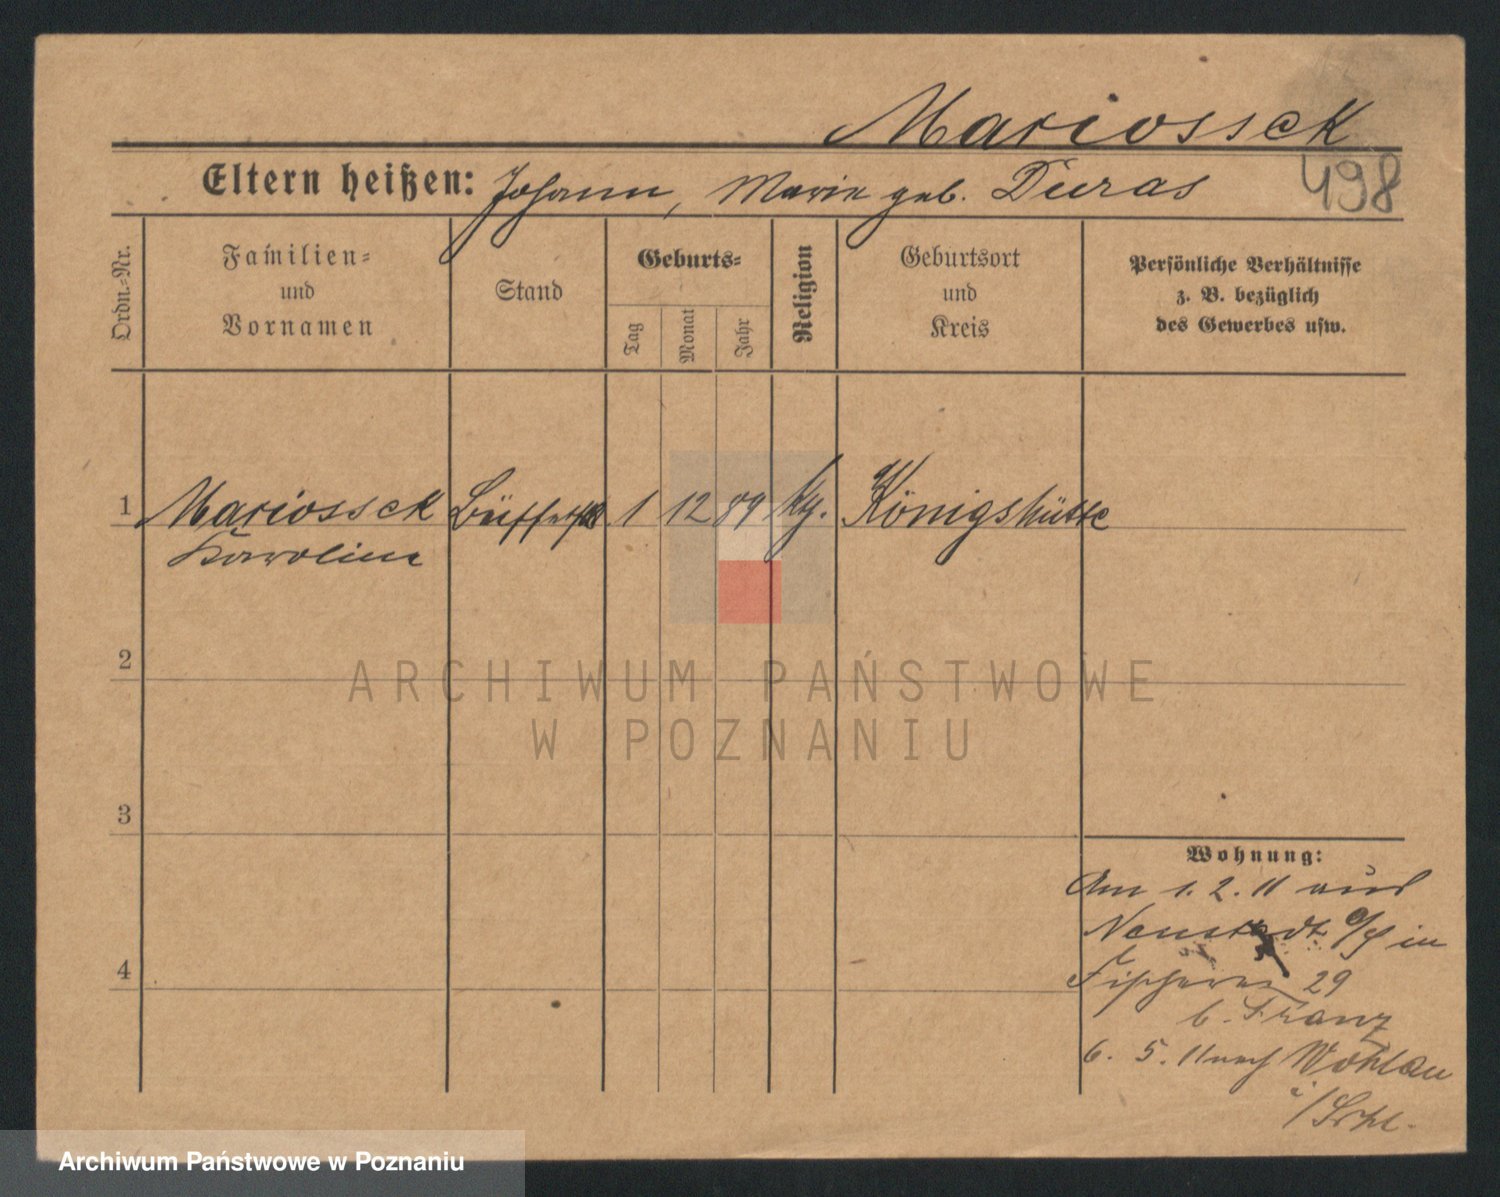 Mariossek
Eltern heißen: Johann, Marie geb. Duras
498
Ordn.-Nr.
Familien-
und
Vornamen
Stand
Geburts-
Tag
Monat
Jahr
Religion
Geburtsort
und
Kreis
Persönliche Verhältnisse
z. B. bezüglich
des Gewerbes usw.
1 Mariossek 1 12 89 Königshütte
Karoline
2
ARCHIWUM PAŃSTWOWE
W POZNANIU
3
Wohnung:
Am 1. 2. 11 aus
Neustadt in
4
Fischerei 29
b. Franz
6. 5. 11 nach Wohlau
i/Schl.
Archiwum Państwowe w Poznaniu